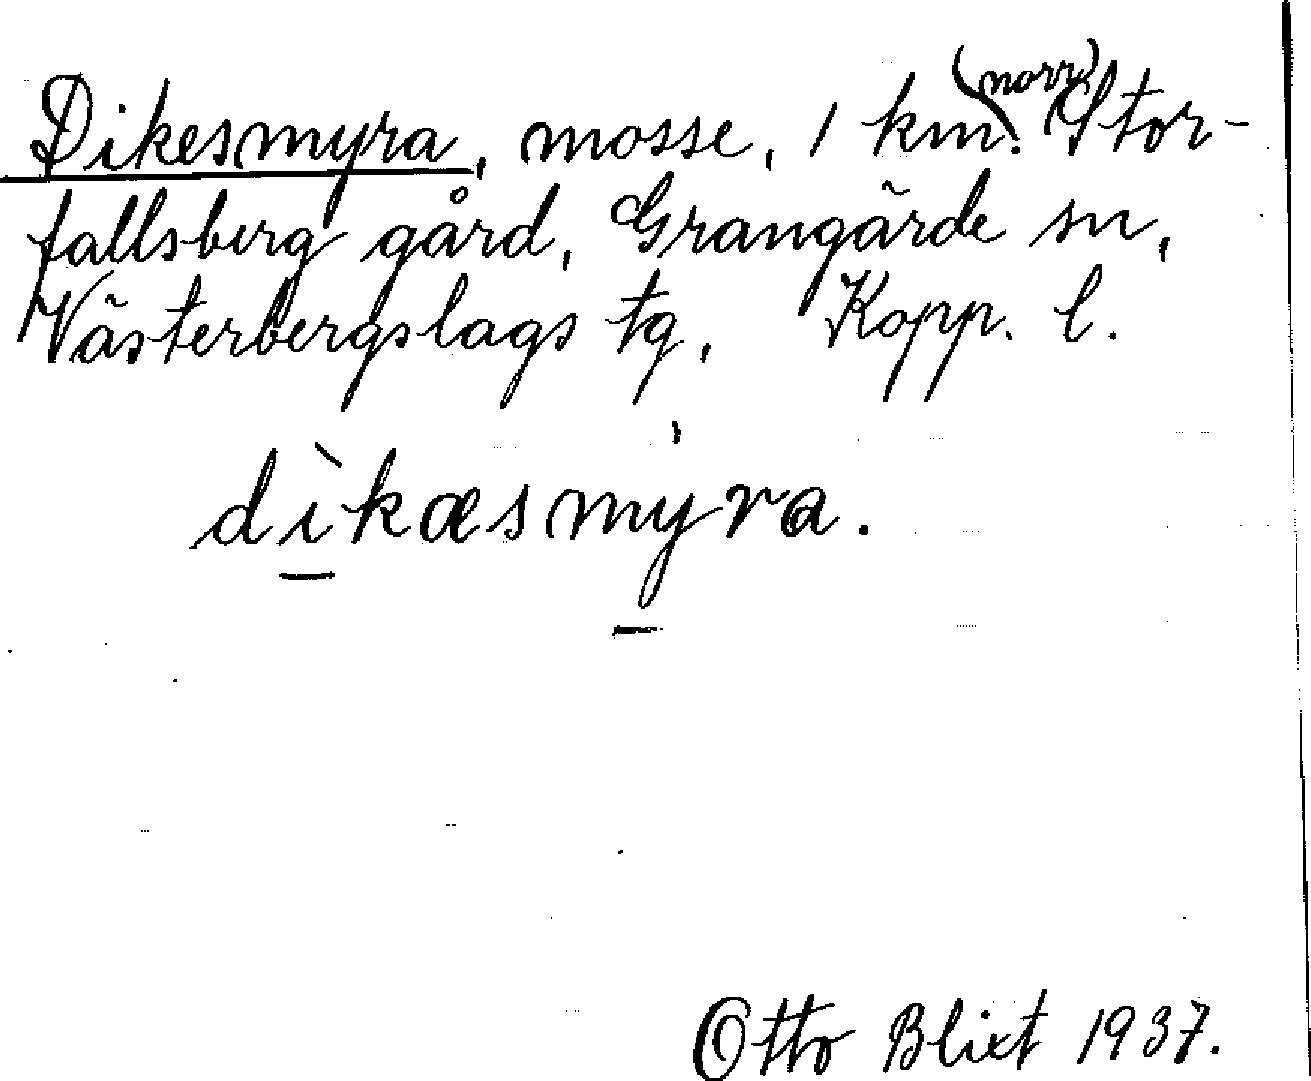 Dikesmyra, mosse, 1 km. (norr) Stor-
fallsberg gård, Grangärde sn,
Västerbergslags tg, Kopp. l.
dìkæsmyra.
Otto Blixt 1937.